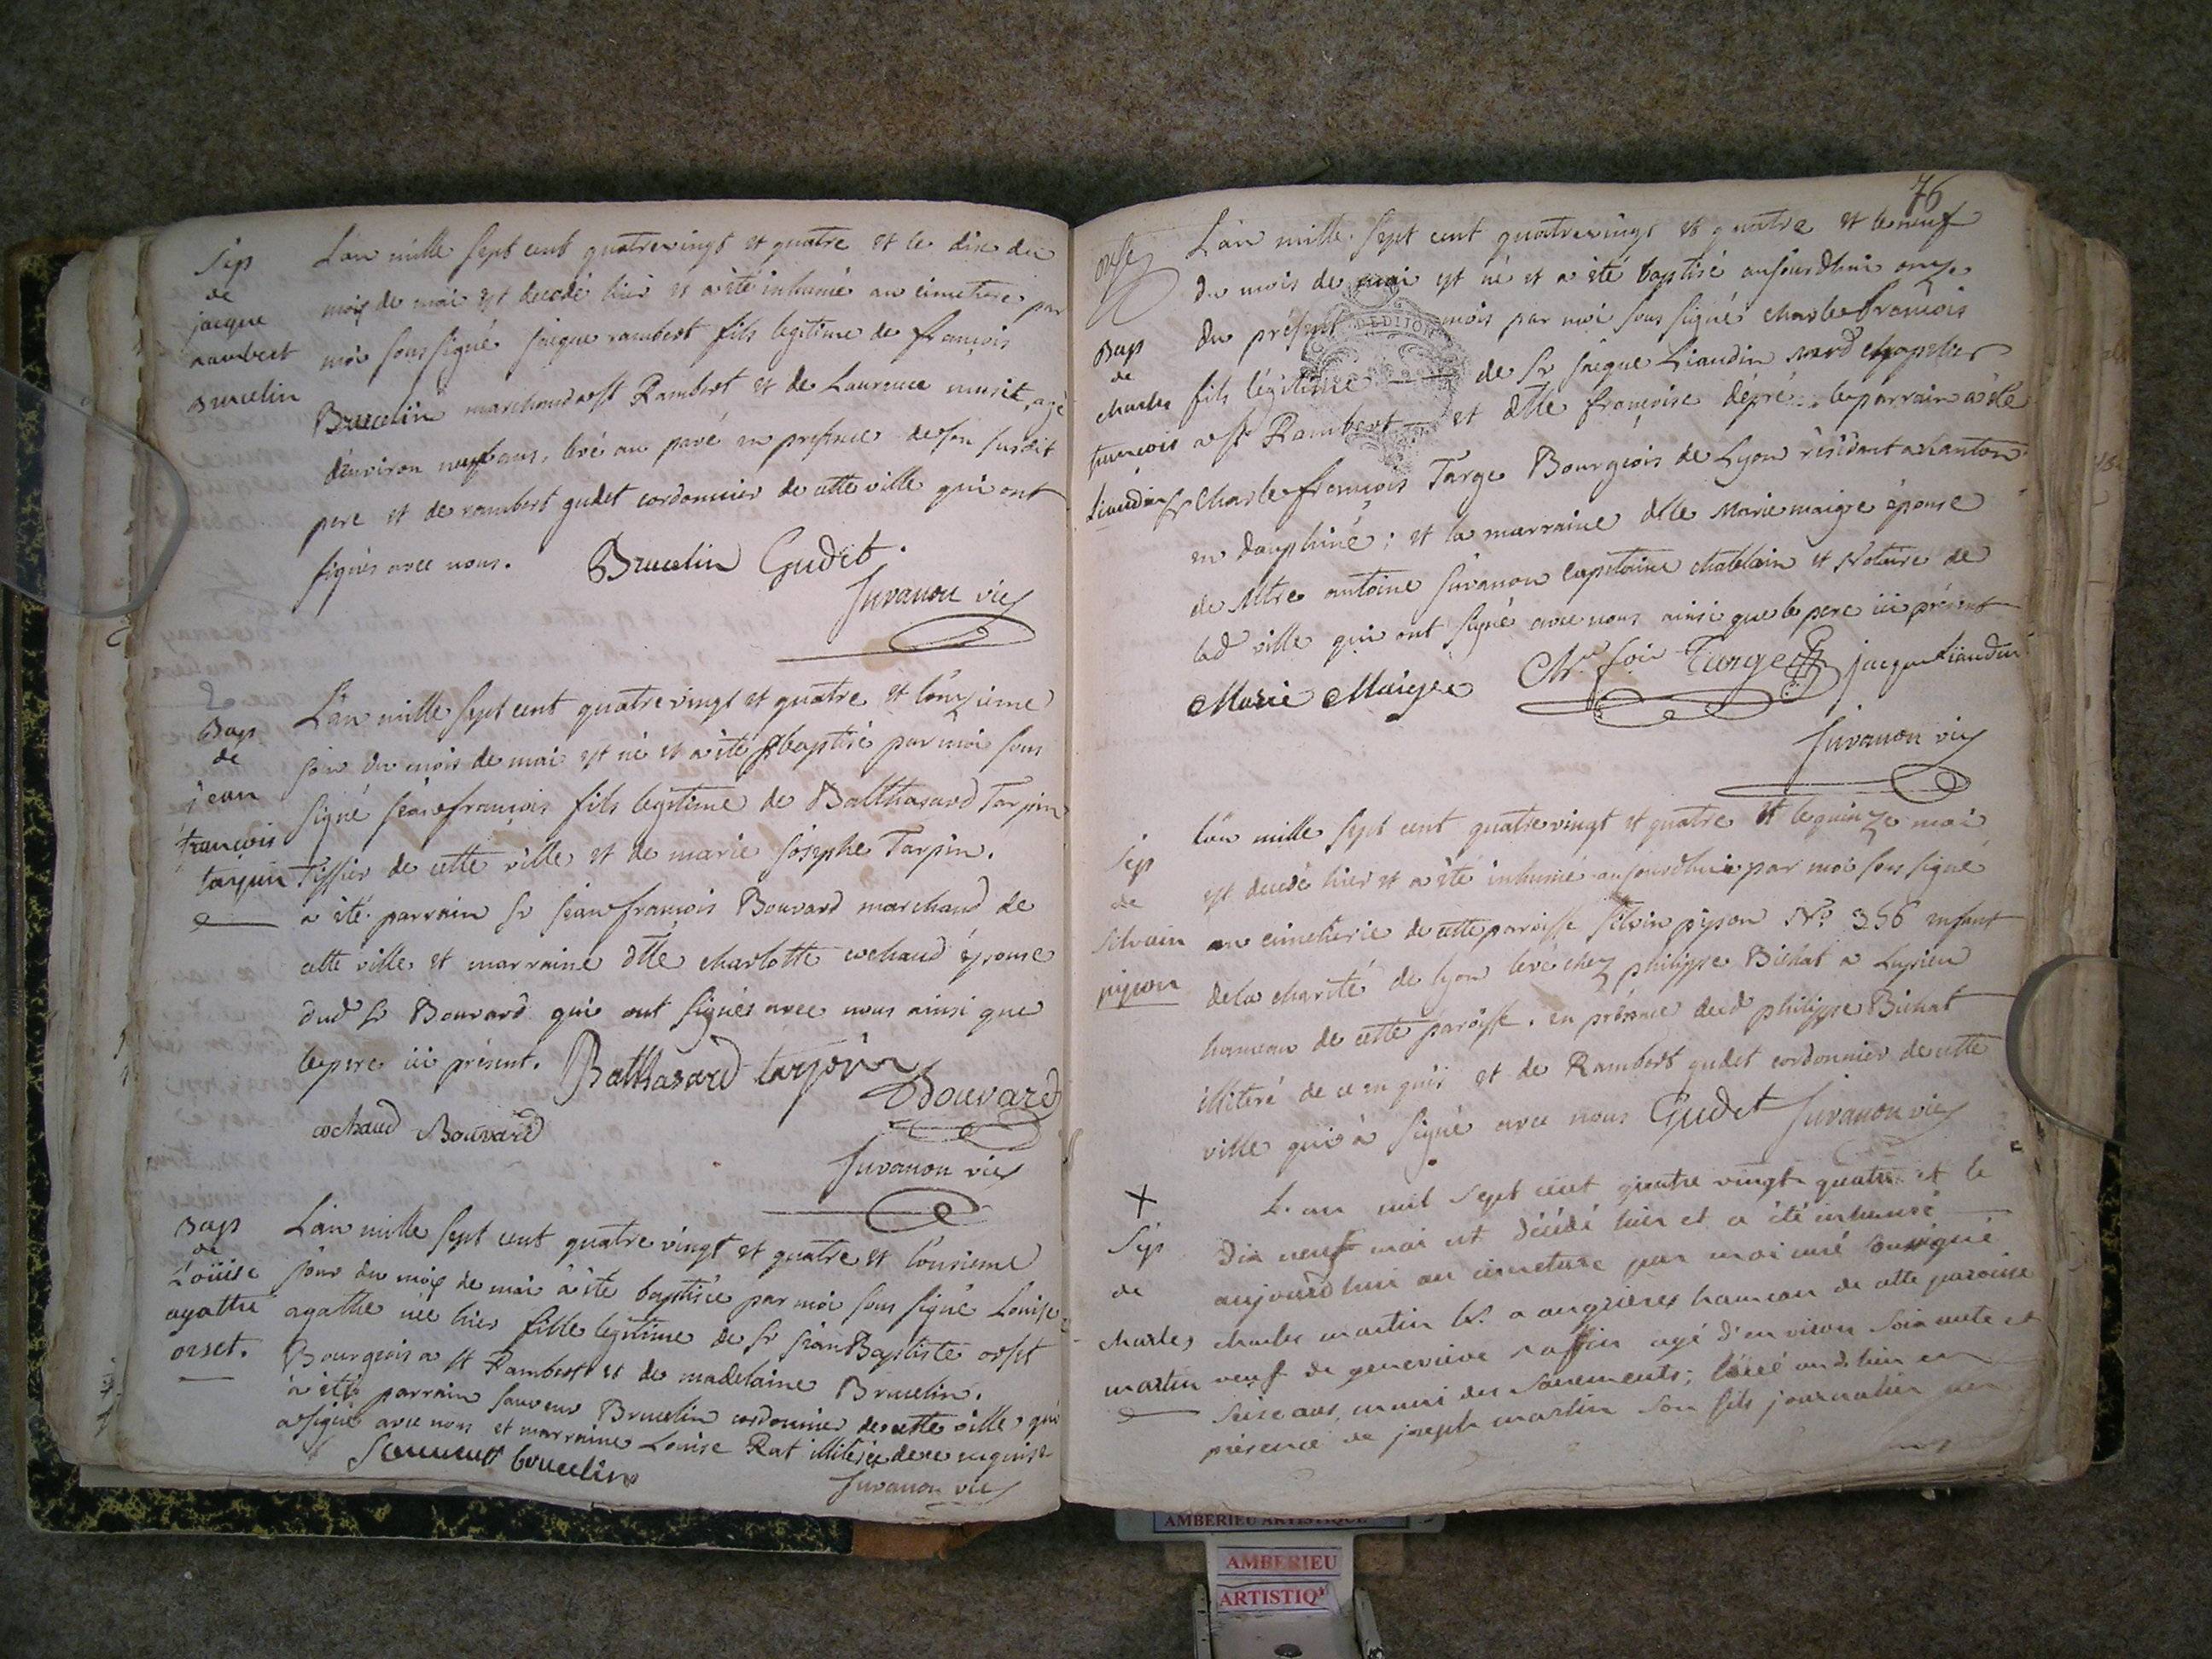 Sep
de
jacque
rambert
Brucelin
L'an mille sept cent quatrevingt et quatre et le dix du
mois de mai est decedé hier et a été inhumé au cimetiere par
moi sous signé jacque rambert fils legitime de françois
Brucelin marchand a st Rambert et de Laurence musit, agé
d'environ neuf ans, levé au pavé en presence de son susdit
pere et de rambert gudet cordonnier de cette ville qui ont
signés avec nous. Brucelin Gudet.
Juvanon vic
Bap
de
jean
françois
tarpin
L'an mille sept cent quatre vingt et quatre et l'onzieme
jour du mois de mai est né et a été baptisé par moi sous
signé jean francois fils legitime de Balthasard Tarpin
Tissier de cette ville et de marie josephe Tarpin.
a été parrain sr jean francois Bouvard marchand de
cette ville et marraine dlle charlotte cochaud épouse
dud sr Bouvard qui ont signés avec nous ainsi que
le pere ici présent. Balthasard tarpin
Bouvard
cochaud Bouvard
Juvanon vic
Bap
de
Loüise
agathe
orset.
L'an mille sept cent quatre vingt et quatre et l'onzieme
jour du mois de mai a été baptisée par moi sous signé Louise
agathe née hier fille legitime de sr jean Baptiste orset
Bourgeois a st Rambert et de madelaine Brucelin.
a été parrain sauveur Brucelin cordonnier de cette ville qui
a signé avec nous et marraine Louise Rat illiterée de ce enquise
Sauveur brucelin
Juvanon vic
76
Bap
de
charles
francois
Liaudin
L'an mille sept cent quatrevingt et quatre et le neuf
du mois de mai est né et a été baptisé aujourdhui onze
du présent mois par moi sous signé charle françois
fils légitime de sr jacque Liaudin mard chapelier
a st Rambert et dlle françoise dépré.. le parrain a été
sr Charle françois Targe Bourgeois de Lyon résidant a hanton
en dauphiné; et la marraine dlle Marie maige épouse
de Mtre antoine juvanon capitaine chatelain et Notaire de
lad ville qui ont signé avec nous ainsi que le pere ici présent
Marie Maige Chle fois Targe jacque Liaudin
Juvanon vic
DE DIJON
Sep
de
Silvain
pijson
L'an mille sept cent quatre vingt et quatre et le quinze mai
est decedé hier et a été inhumé aujourdhui par moi sous signé
au cimetierie de cette paroisse silvin pijson No. 356 enfant
de la charité de lyon levé chez philippe Bichat a Lupieu
hameau de cette paroisse. en présence dud philippe Bichat
illiteré de ce enquis et de Rambert gudet cordonnier de cette
ville qui a signé avec nous Gudet Juvanon vic
X
Sep
de
charles
martin
L'an mil sept cent quatre vingt quatre et le
dix neuf mai est décédé hier et a été inhumé
aujourd'hui au cimetiere par moi curé soussigné
charles martin a angrieres hameau de cette paroisse
veuf de genevieve raffin agé d'environ soixante et
seise ans, muni des sacrements; levé aud. lieu en
présence de joseph martin son fils journalier
AMBERIEU ARTISTIQUE
AMBERIEU
ARTISTIQ